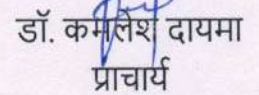 डॉ. कमलेश दायमा
प्राचार्य